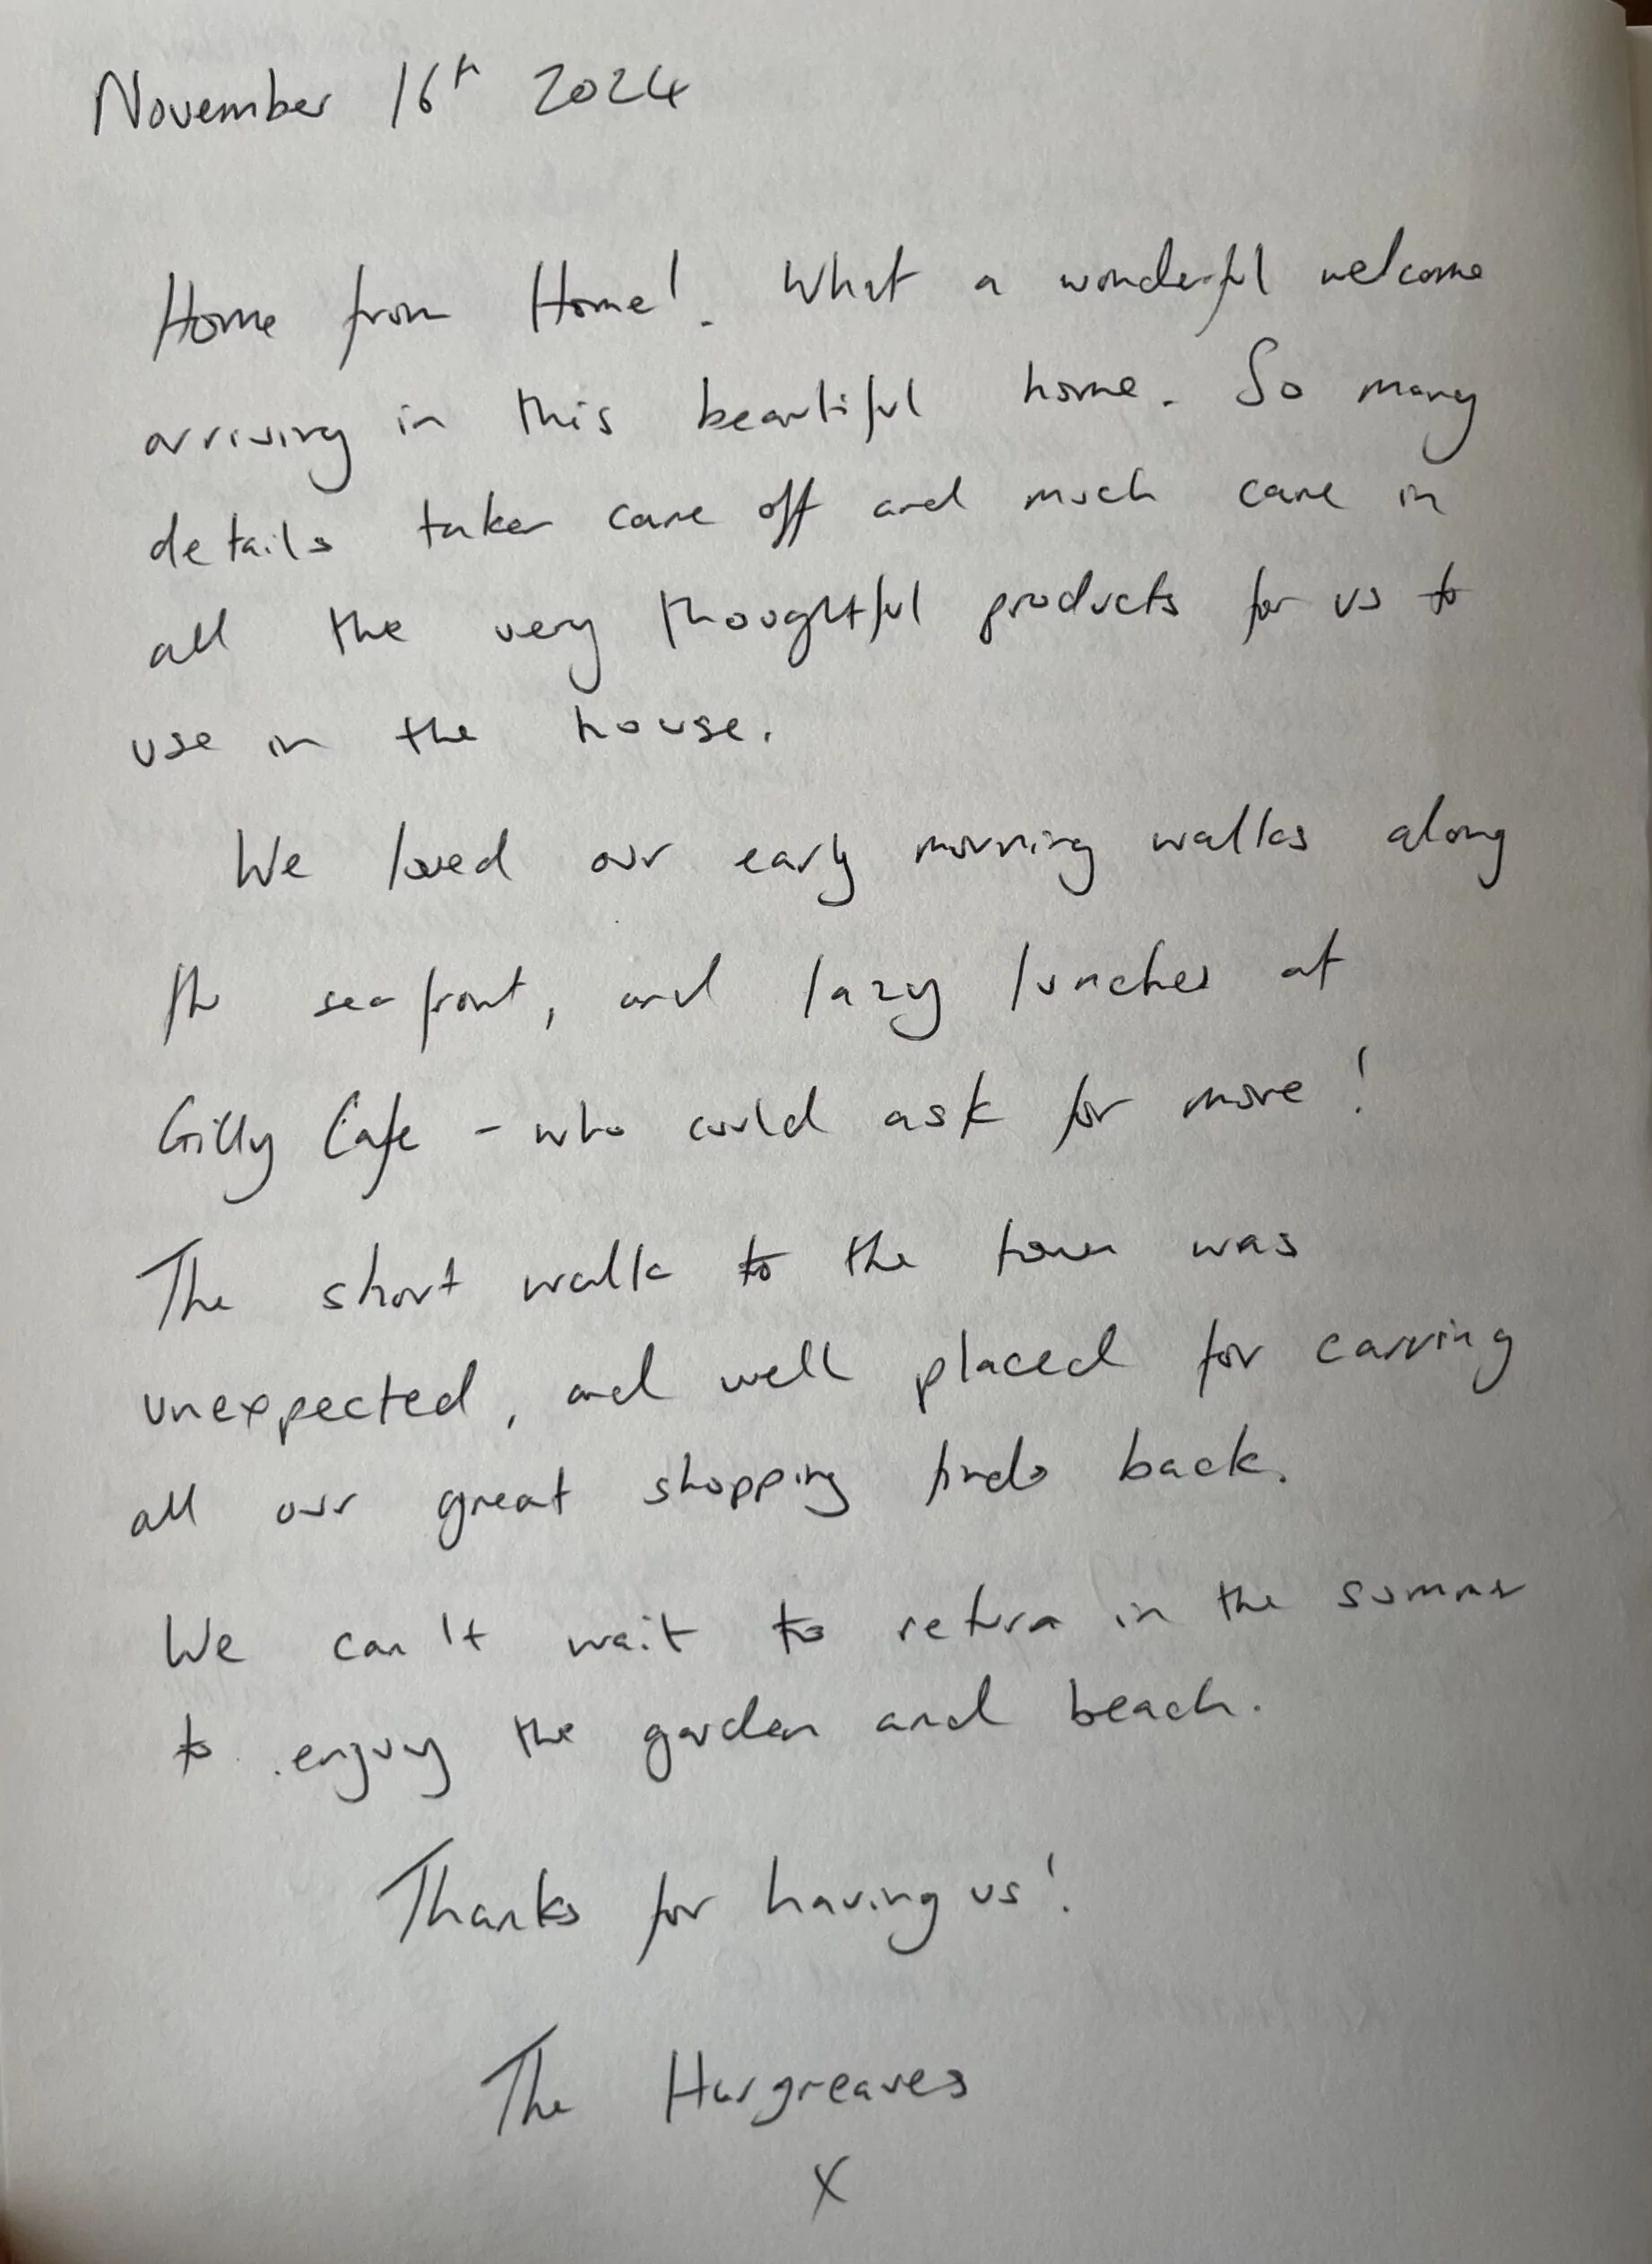 November 16th 2024
Home from Home! What a wonderful welcome
arriving in this beautiful home. So many
details taken care off and much care in
all the very thoughtful products for us to
use in the house.
We loved our early morning walks along
the seafront, and lazy lunches at
Gilly Cafe - who could ask for more!
The short walk to the town was
unexpected, and well placed for carrying
all our great shopping finds back.
We can't wait to return in the summer
to enjoy the garden and beach.
Thanks for having us!
The Hargreaves
x